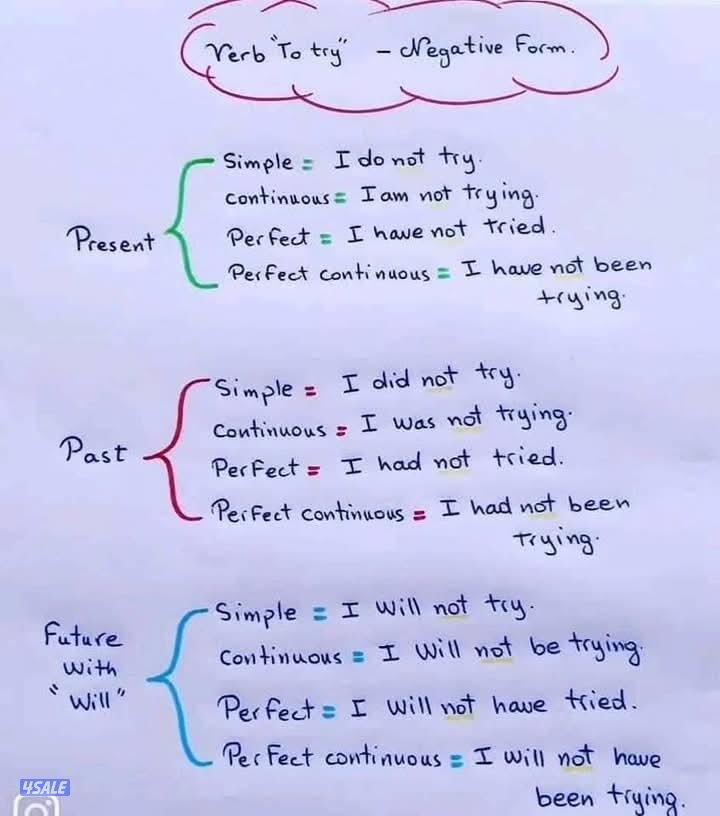 Verb "To try" - Negative Form.
Simple = I do not try.
Continuous = I am not trying.
Present
Perfect = I have not tried.
Perfect continuous = I have not been
trying.
Simple = I did not try.
Continuous = I was not trying.
Past
Perfect = I had not tried.
Perfect continuous = I had not been
trying.
Simple = I will not try.
Future
with
"Will"
Continuous = I will not be trying.
Perfect = I will not have tried.
Perfect continuous = I will not have
been trying.
4SALE